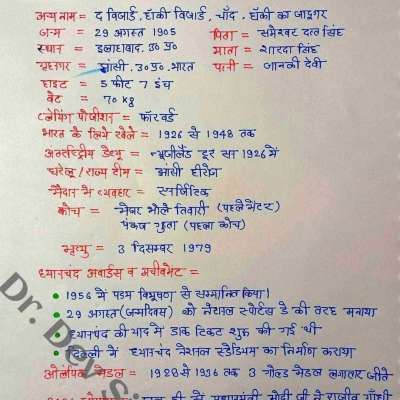 अन्य नाम = द विजार्ड, हॉकी विजार्ड, चाँद, हॉकी का जादूगर
जन्म = 29 अगस्त 1905 पिता = समेश्वर दत्त सिंह
स्थान = इलाहाबाद, उ० प्र० माता = शारदा सिंह
गृहनगर = झांसी, उ० प्र०, भारत पत्नी = जानकी देवी
हाइट = 5 फीट 7 इंच
वेट = 70 kg
प्लेयिंग पोजीशन = फॉरवर्ड
भारत के लिये खेले = 1926 से 1948 तक
अन्तर्राष्ट्रीय डेब्यू = न्यूजीलैंड टूर सन 1926 में
घरेलू / राज्य टीम = झांसी हीरोज
मैदान में व्यवहार = एनर्जेटिक
कोच = मेजर भोले तिवारी (पहले मेंटर)
पंकज गुप्ता (पहला कोच)
मृत्यु = 3 दिसम्बर 1979
ध्यानचंद अवार्डस व अचीवमेंट =
• 1956 में पद्म विभूषण से सम्मानित किया।
• 29 अगस्त (जन्मदिवस) को नेशनल स्पोर्टस डे की तरह मनाया
ध्यानचंद की याद में डाक टिकट शुरू की गई थी
• दिल्ली में ध्यानचंद नेशनल स्टेडियम का निर्माण कराया
ओलंपिक मेडल = 1928 से 1936 तक 3 गोल्ड मेडल लगातार जीते
प्रधानमंत्री मोदी जी ने राजीव गाँधी
Dr. Dev S